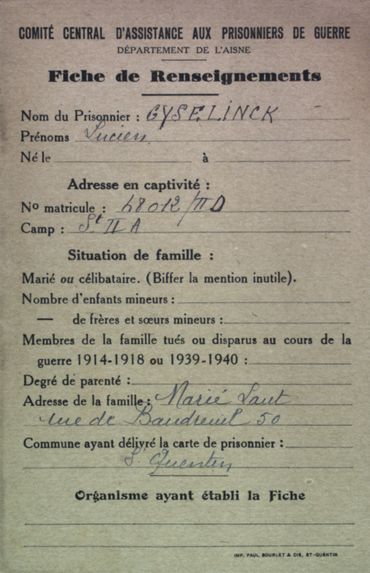 COMITÉ CENTRAL D'ASSISTANCE AUX PRISONNIERS DE GUERRE
DÉPARTEMENT DE L'AISNE
Fiche de Renseignements
Nom du Prisonnier : GYSELINCK
Prénoms Lucien
Né le à
Adresse en captivité :
No matricule : 48012/IID
Camp : St II A
Situation de famille :
Marié ou célibataire. (Biffer la mention inutile).
Nombre d'enfants mineurs :
— de frères et sœurs mineurs :
Membres de la famille tués ou disparus au cours de la
guerre 1914-1918 ou 1939-1940 :
Degré de parenté :
Adresse de la famille : Marié
rue de Baudreuil 50
Commune ayant délivré la carte de prisonnier :
St Quentin
Organisme ayant établi la Fiche
IMP. PAUL BOURLET & CIE, ST-QUENTIN